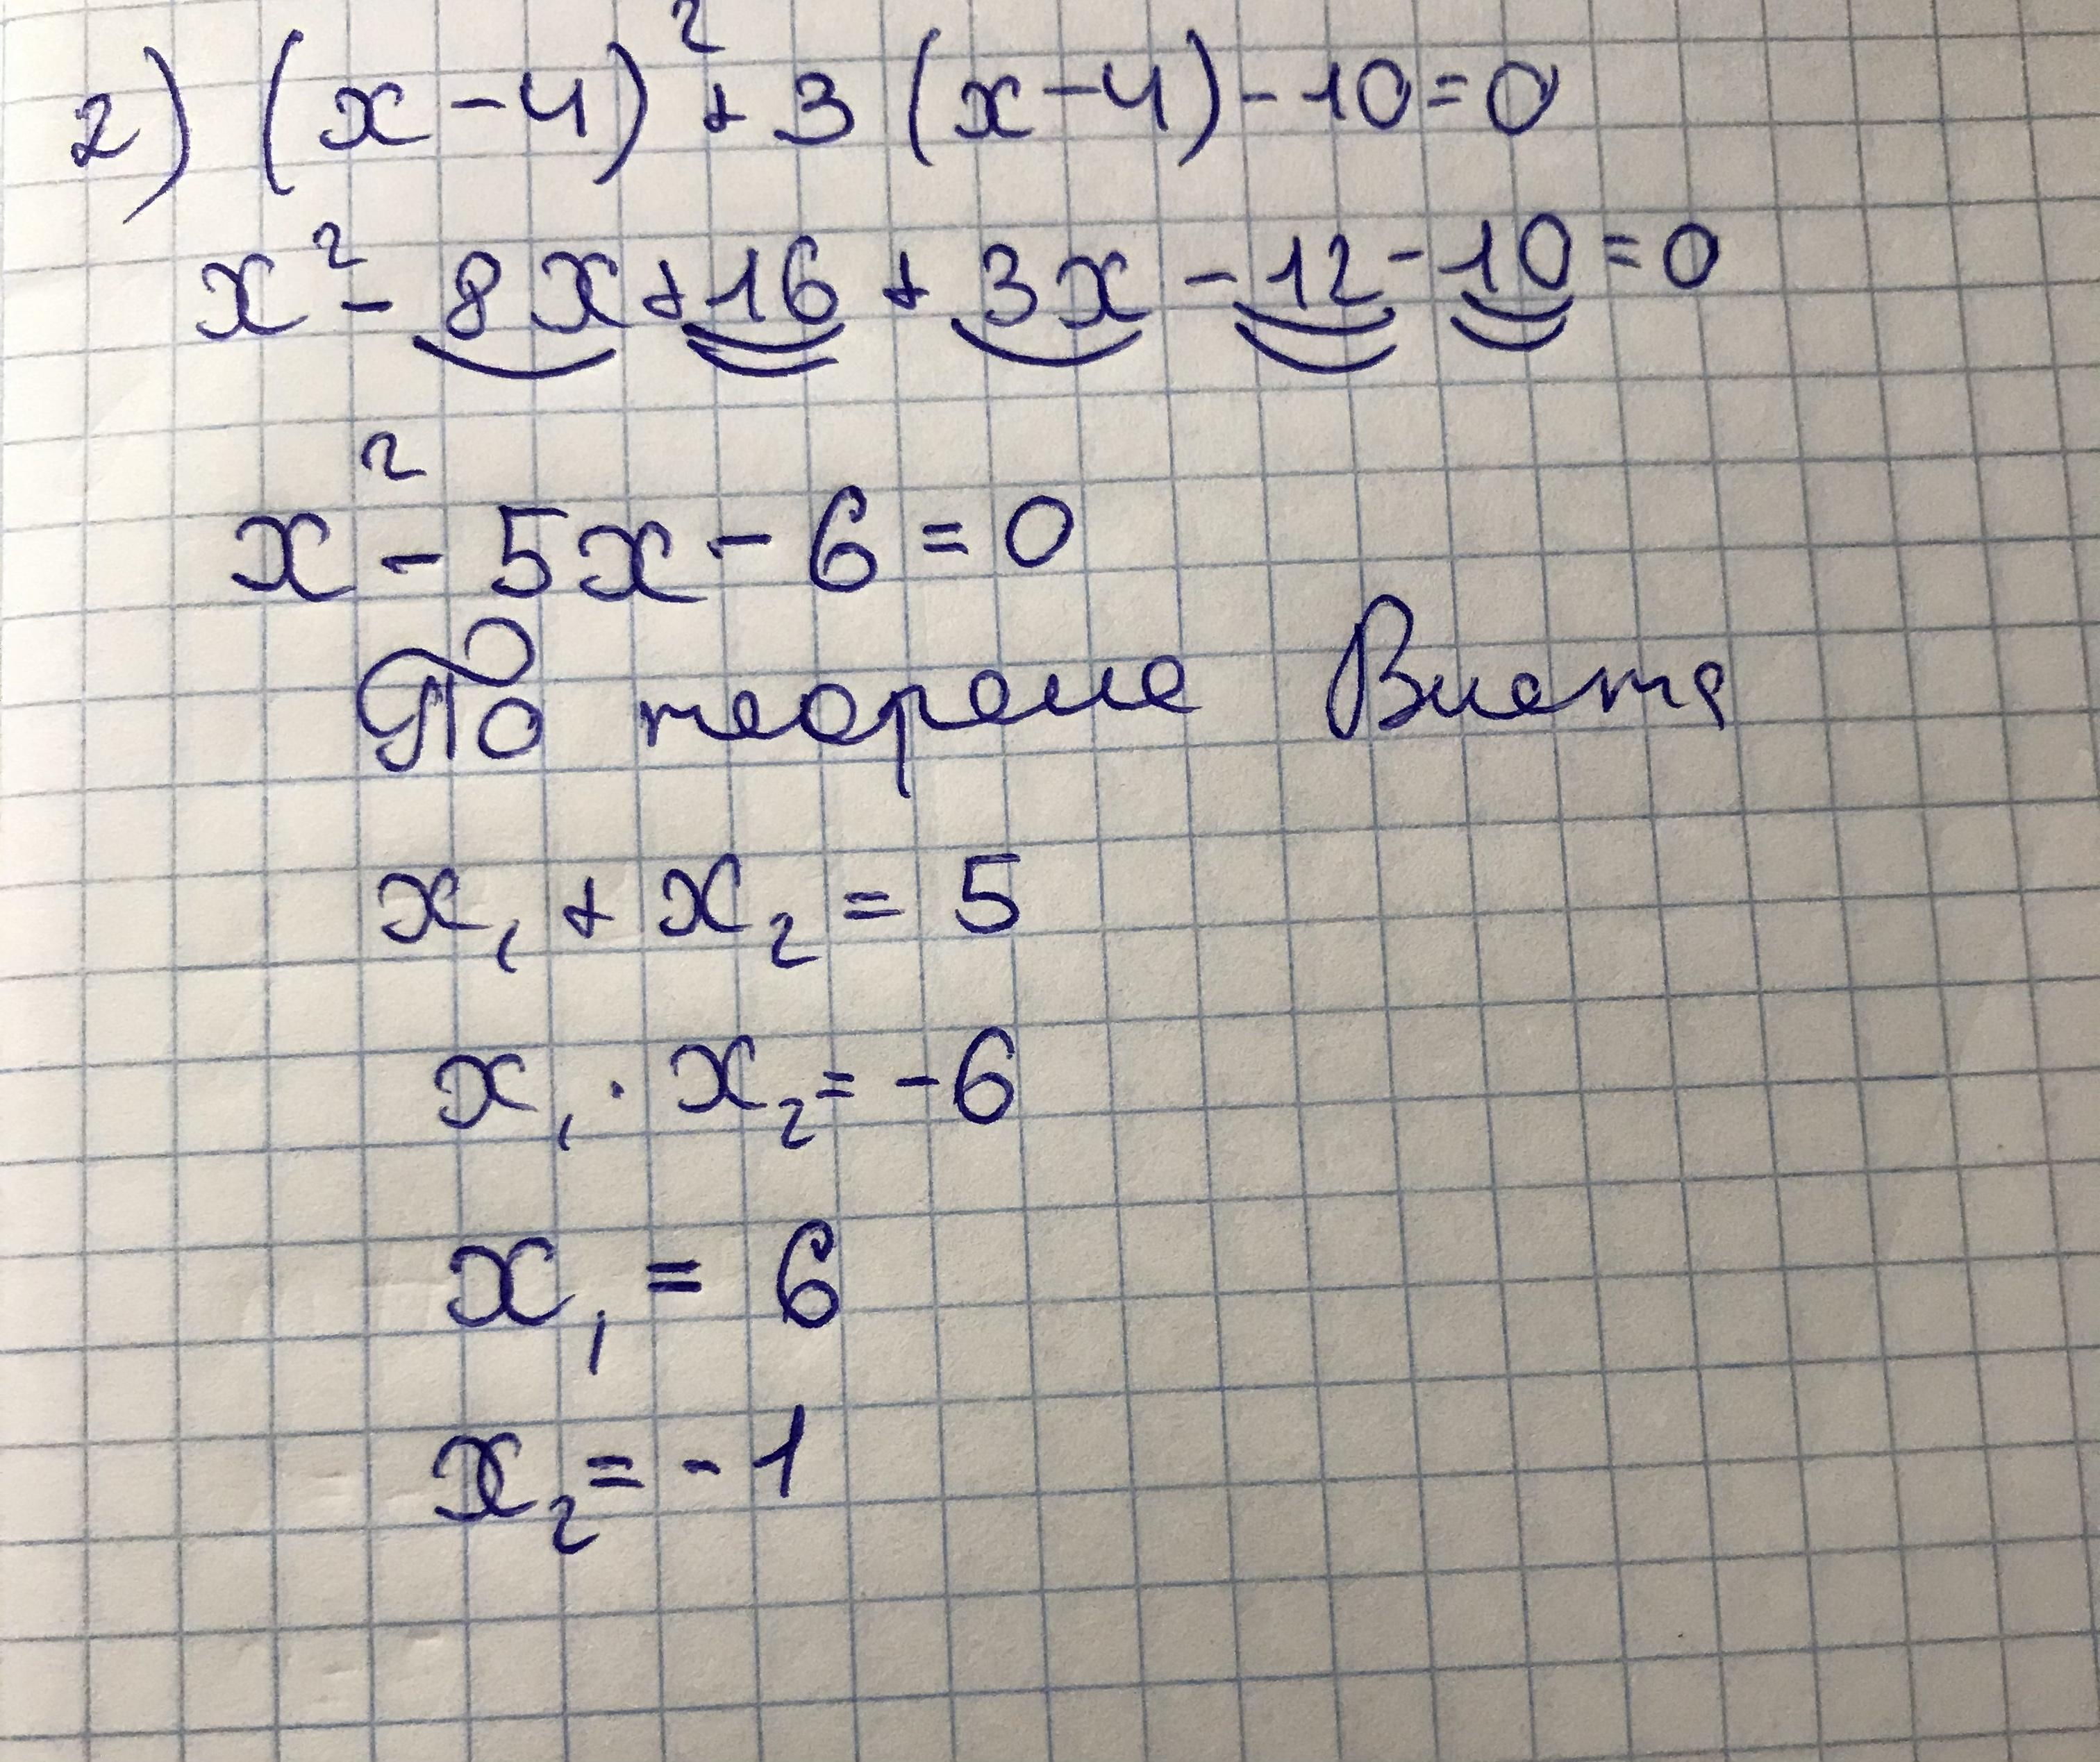 2) (x-4)² + 3 (x-4) - 10 = 0
x² - 8x + 16 + 3x - 12 - 10 = 0
x² - 5x - 6 = 0
По теореме Виета
x₁ + x₂ = 5
x₁ · x₂ = -6
x₁ = 6
x₂ = -1